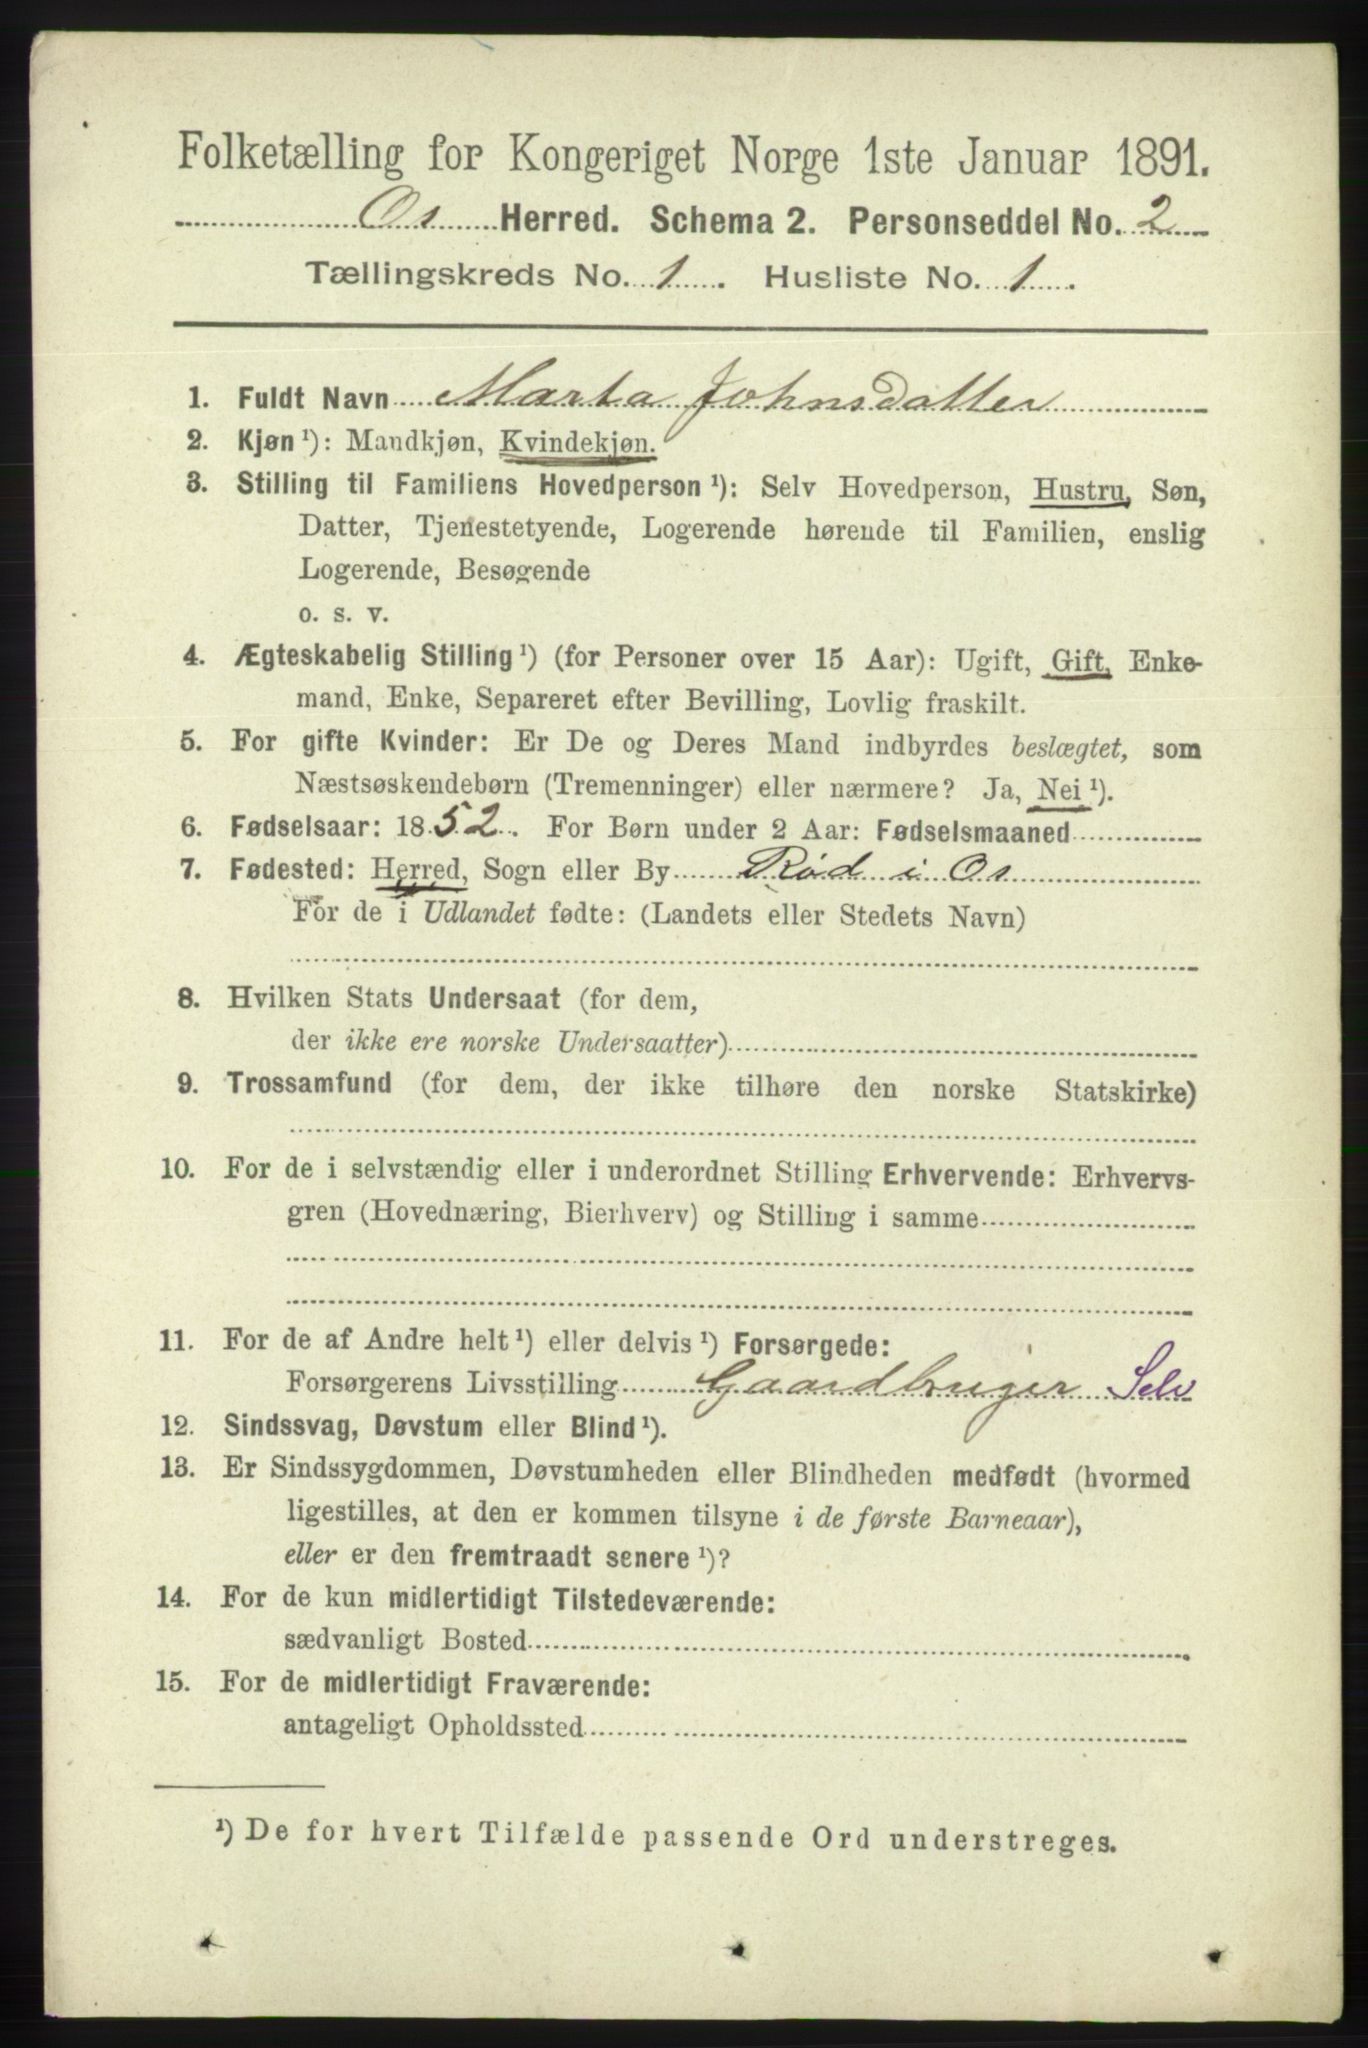 Folketælling for Kongeriget Norge 1ste Januar 1891.
Os Herred. Schema 2. Personseddel No. 2
Tællingskreds No. 1. Husliste No. 1.
1. Fuldt Navn Marta Johnsdatter
2. Kjøn ¹): Mandkjøn, Kvindekjøn.
3. Stilling til Familiens Hovedperson ¹): Selv Hovedperson, Hustru, Søn,
Datter, Tjenestetyende, Logerende hørende til Familien, enslig
Logerende, Besøgende
o. s. v.
4. Ægteskabelig Stilling ¹) (for Personer over 15 Aar): Ugift, Gift, Enke-
mand, Enke, Separeret efter Bevilling, Lovlig fraskilt.
5. For gifte Kvinder: Er De og Deres Mand indbyrdes beslægtet, som
Næstsøskendebørn (Tremenninger) eller nærmere? Ja, Nei ¹).
6. Fødselsaar: 1852. For Børn under 2 Aar: Fødselsmaaned
7. Fødested: Herred, Sogn eller By Rød i Os
For de i Udlandet fødte: (Landets eller Stedets Navn)
8. Hvilken Stats Undersaat (for dem,
der ikke ere norske Undersaatter)
9. Trossamfund (for dem, der ikke tilhøre den norske Statskirke)
10. For de i selvstændig eller i underordnet Stilling Erhvervende: Erhvervs-
gren (Hovednæring, Bierhverv) og Stilling i samme
11. For de af Andre helt ¹) eller delvis ¹) Forsørgede:
Forsørgerens Livsstilling Gaardbruger Selv
12. Sindssvag, Døvstum eller Blind ¹).
13. Er Sindssygdommen, Døvstumheden eller Blindheden medfødt (hvormed
ligestilles, at den er kommen tilsyne i de første Barneaar),
eller er den fremtraadt senere ¹)?
14. For de kun midlertidigt Tilstedeværende:
sædvanligt Bosted
15. For de midlertidigt Fraværende:
antageligt Opholdssted
¹) De for hvert Tilfælde passende Ord understreges.